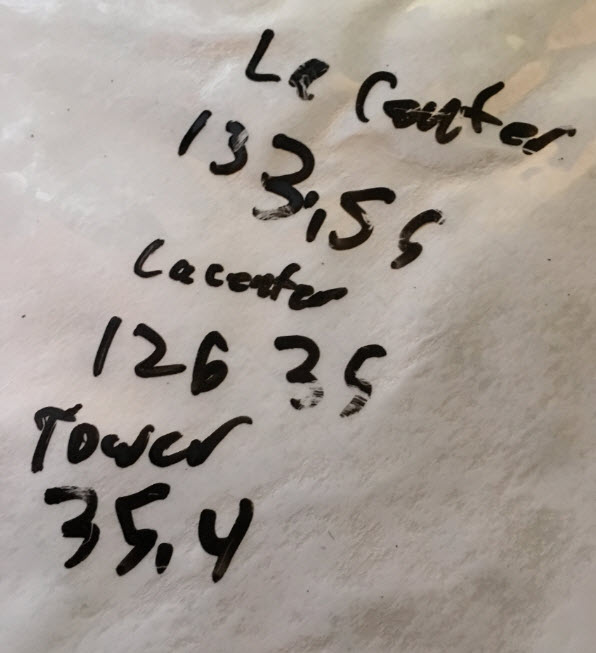 La Center
133,55
Lacenter
126 35
Tower
35.4